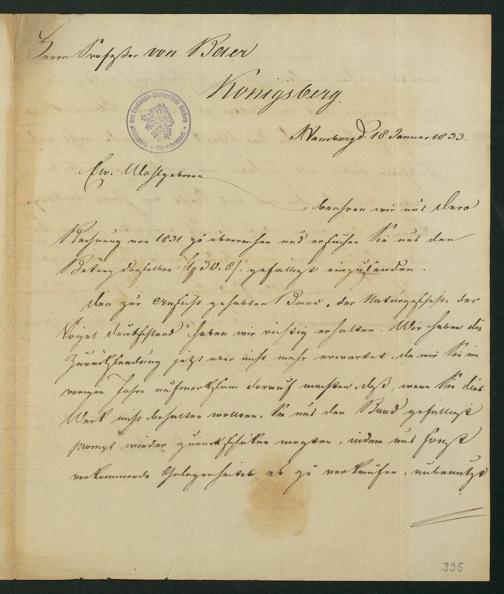 Herrn Professor von Baer
Königsberg.
Hamburg d. 18 Januar 1833.
Ew. Wohlgeboren
beehren wir uns Dero
Rechnung von 1831 zu überreichen und ersuchen Sie uns den
Betrag derselben 30.8 gefälligst einzusenden.
Den zur Ansicht gehabten Band, der Naturgeschichte der
Vögel Deutschland haben wir richtig erhalten. Wir haben die
Zurücksendung jetzt aber nicht mehr erwartet, da wir Sie im
vorigen Jahre aufmerksam darauf machten, daß, wenn Sie dies
Werk nicht behalten wollten, Sie uns den Band gefälligst
prompt wieder zurückschicken mögten, indem uns sonst
vorkommende Gelegenheiten es zu verkaufen, unbenutzt
395